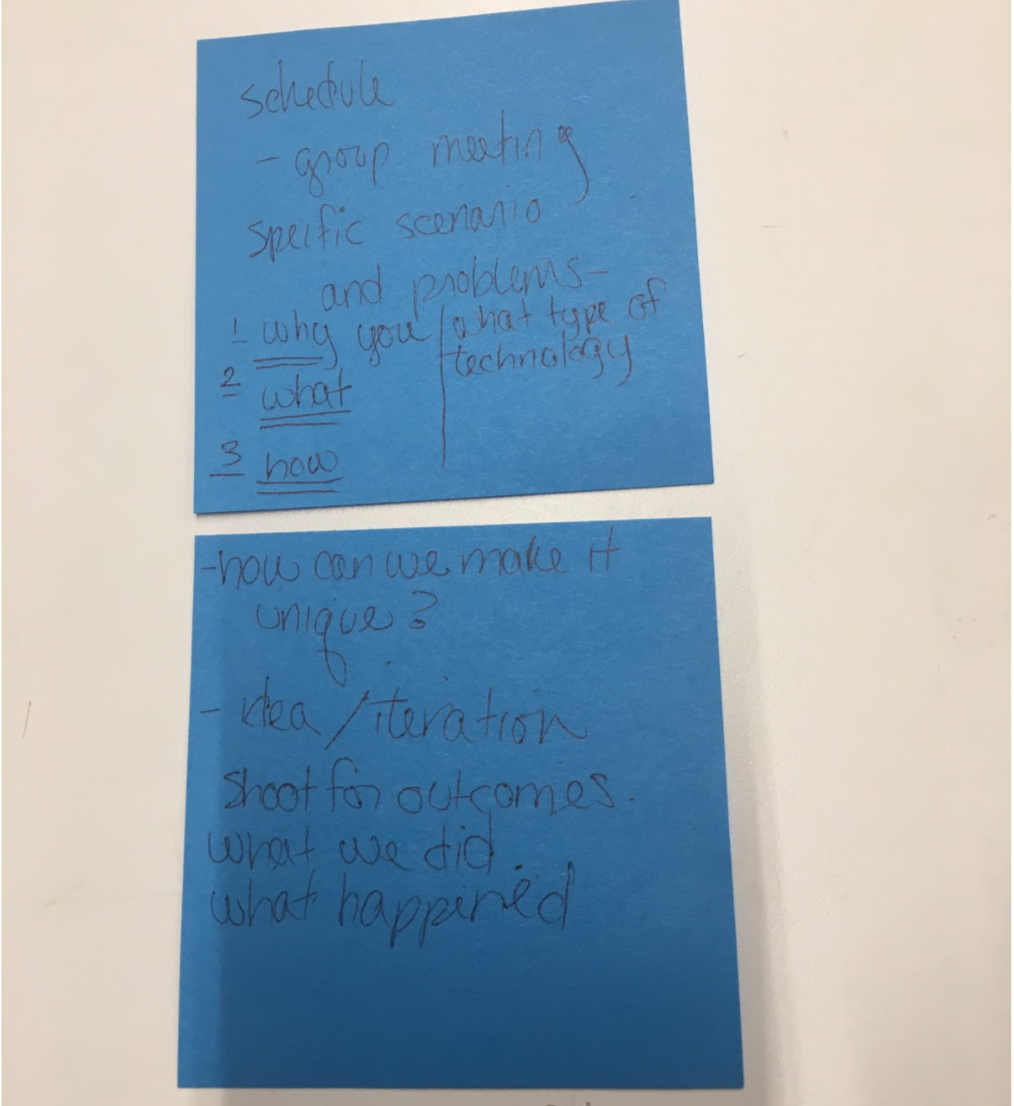 schedule
- group meeting
specific scenario
and problems-
1 why you
2 what
3 how
what type of
technology
-how can we make it
unique?
- idea/iteration
shoot for outcomes.
what we did.
what happened